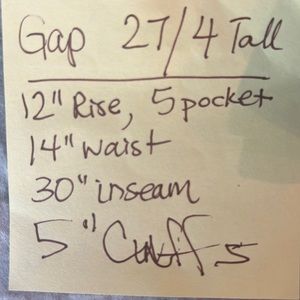 Gap 27/4 Tall
12" Rise, 5 pocket
14" waist
30" inseam
5" Cuffs